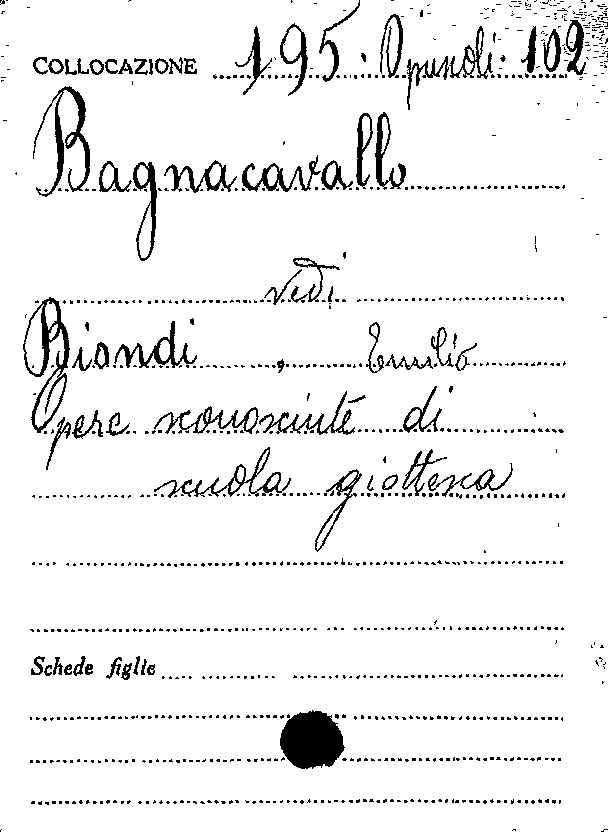 COLLOCAZIONE 195. Opuscoli. 102
Bagnacavallo
vedi
Biondi, Emilio
Opere sconosciute di
scuola giottesca
Schede figlie